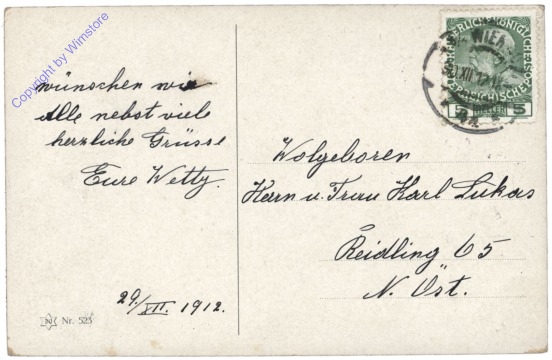 Copyright by Wimstore
wünschen wir
Alle nebst viele
herzliche Grüsse
Eure Wetty.
29./XII. 1912.
Nr. 523
WIEN
XII 12
HELLER
5
5
Wolgeboren
Herrn u. Frau Karl Lukas
Reidling 65
N. Öst.